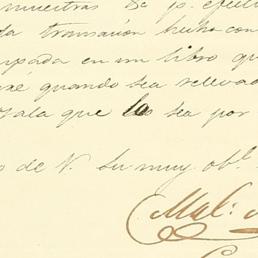 muestras de p. efect
la transación hecha con
upada en un libro qu
aré quando sea relevado
ojala que los sea por
s de V. su muy obl.
Mal: